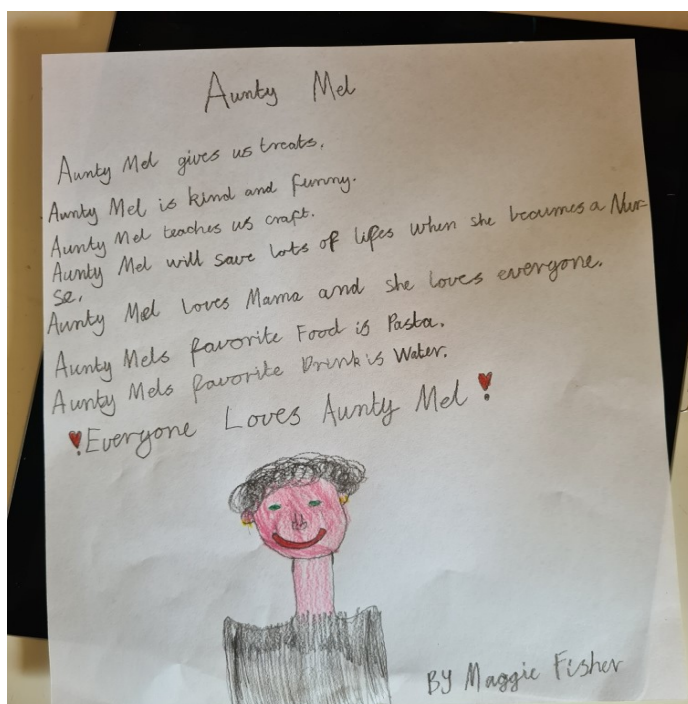 Aunty Mel
Aunty Mel gives us treats.
Aunty Mel is kind and funny.
Aunty Mel teaches us craft.
Aunty Mel will save lots of lifes when she becumes a Nur-
se.
Aunty Mel loves Mama and she loves everyone.
Aunty Mels favorite Food is Pasta.
Aunty Mels favorite Drink is Water.
Everyone Loves Aunty Mel
BY Maggie Fisher